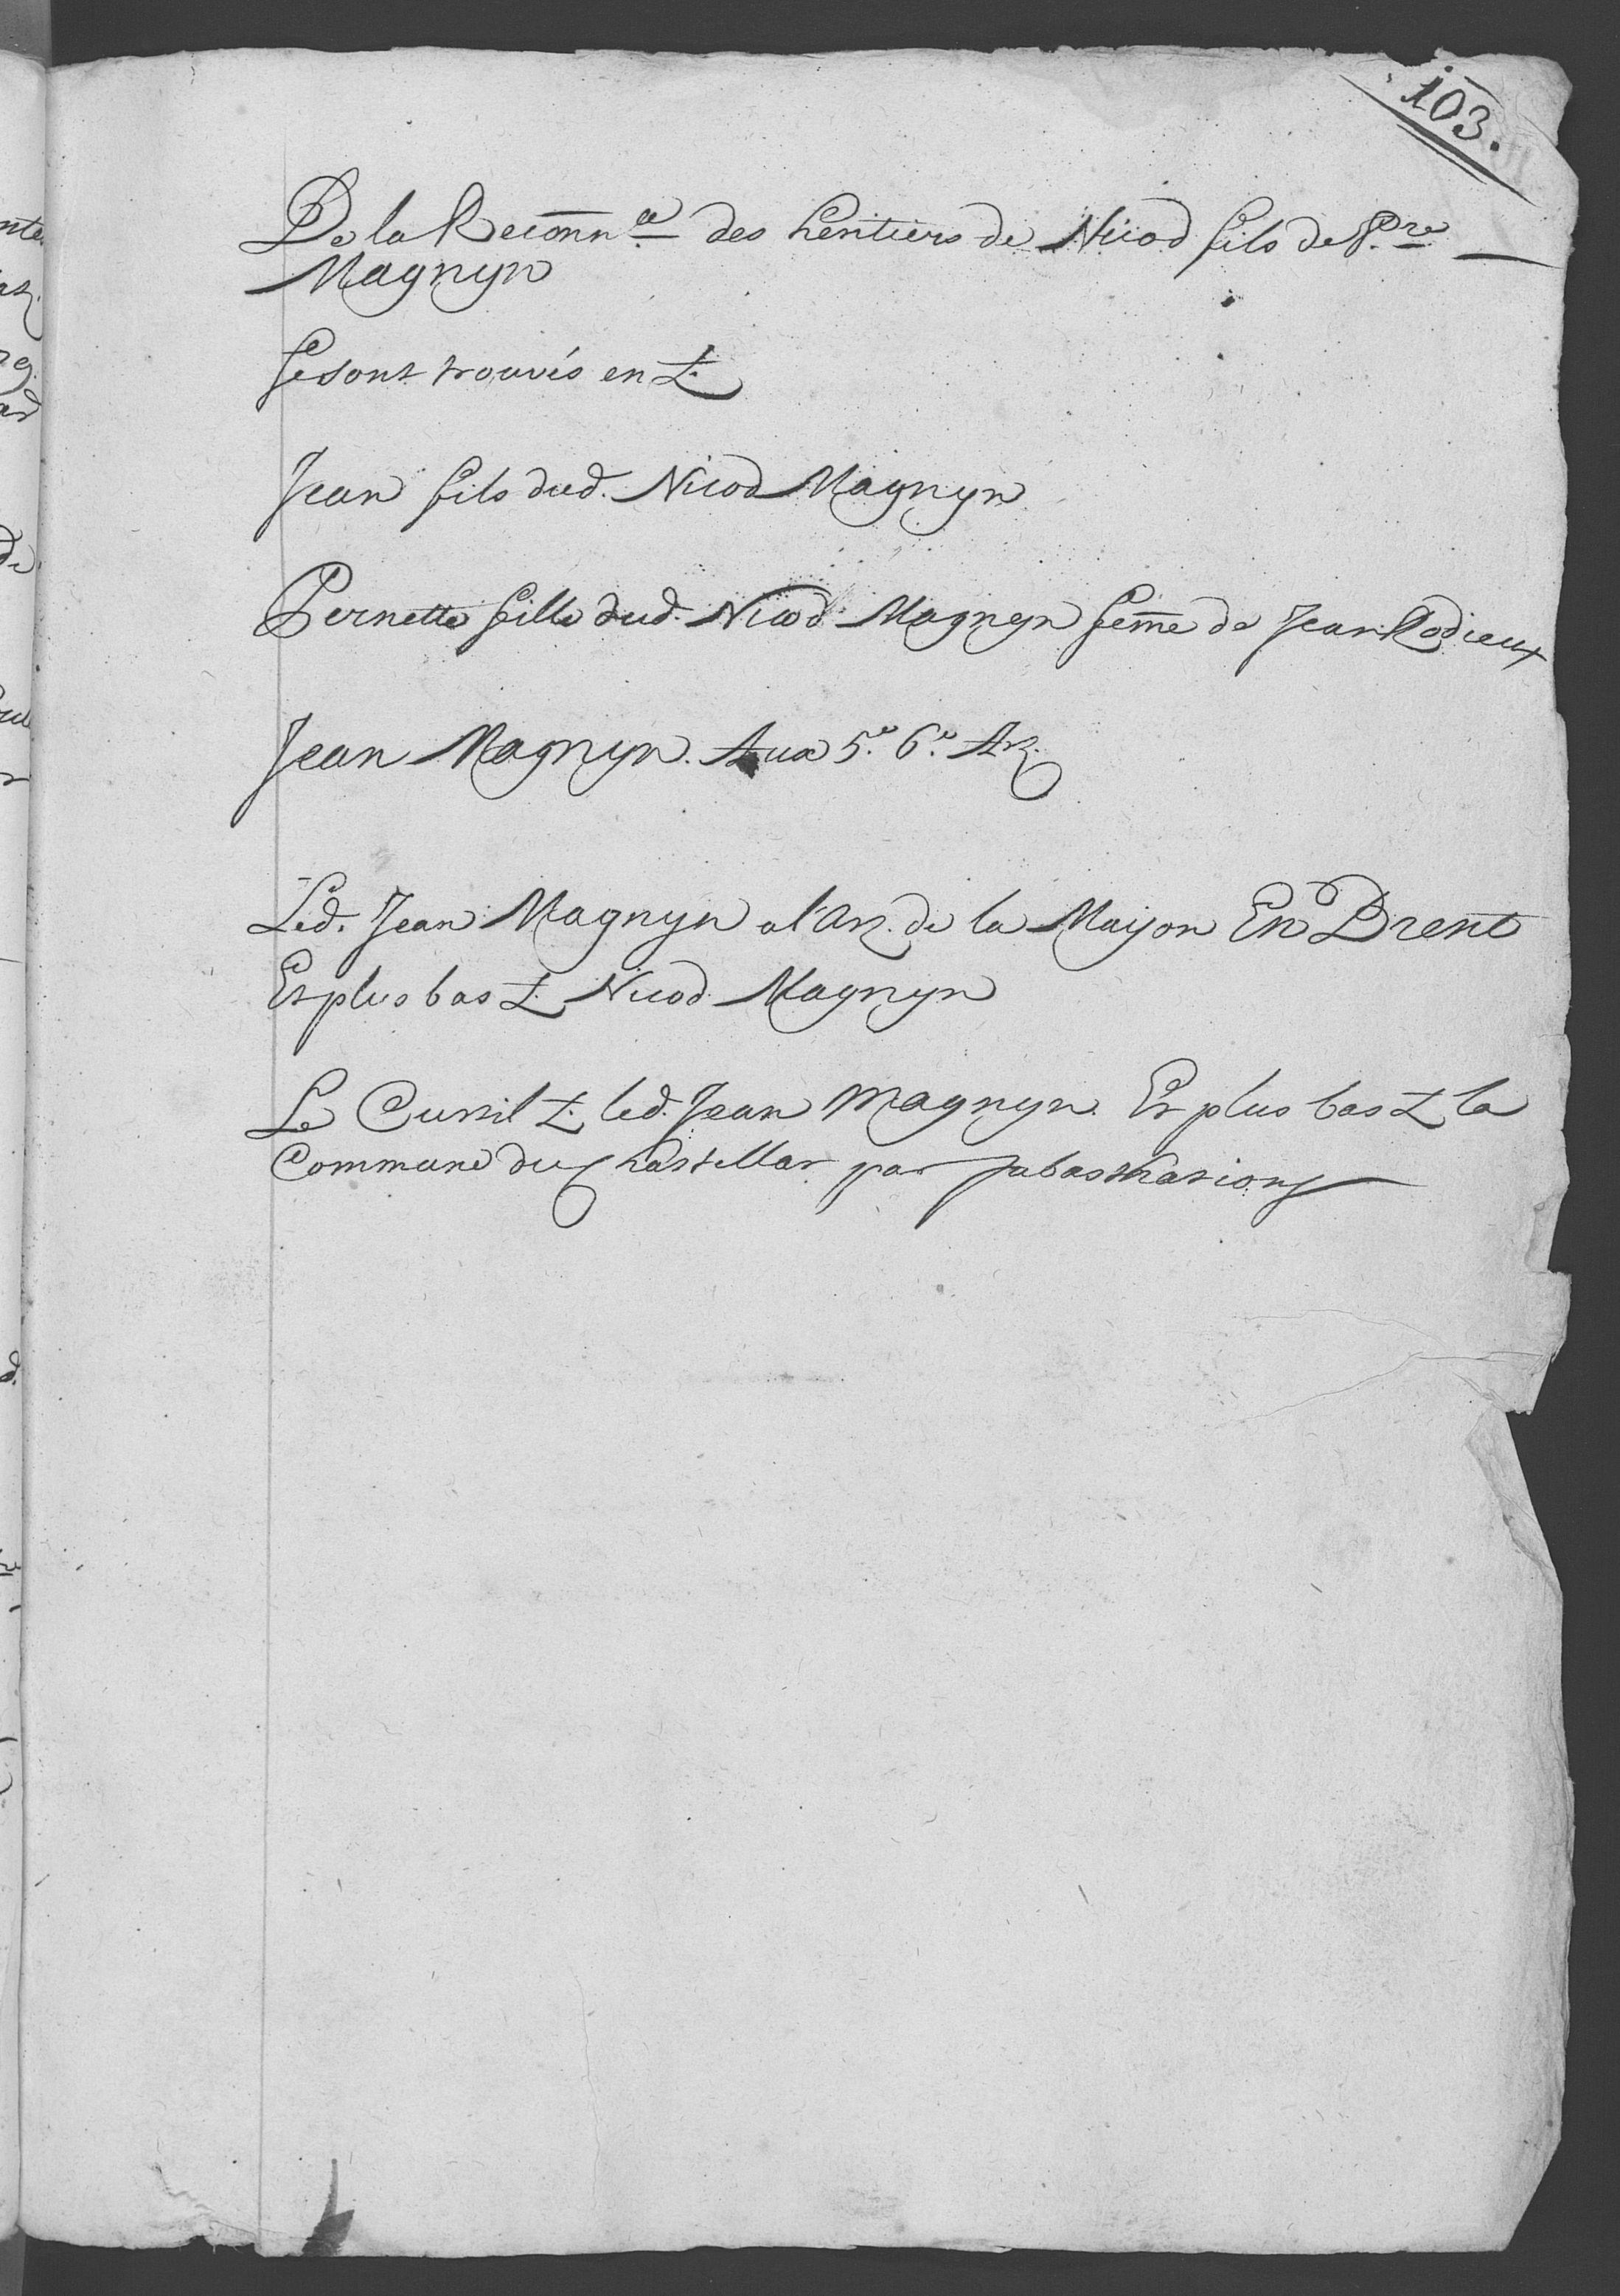 103.
De la Reconn.ce des heritiers de Nicod fils de P.re
Magnyn
Se sont trouvés en t.
Jean fils dud. Nicod Magnyn
Pernette fille dud. Nicod Magnyn feme de Jean Rodieux
Jean Magnyn. Aux 5.e 6.e Ar.
Led. Jean Magnyn a l'ar. de la Mayson En Brent
Et plus bas t. Nicod Magnyn
Le Curtil t. led. Jean Magnyn. Et plus bas t. la
Commune du Chastellar par